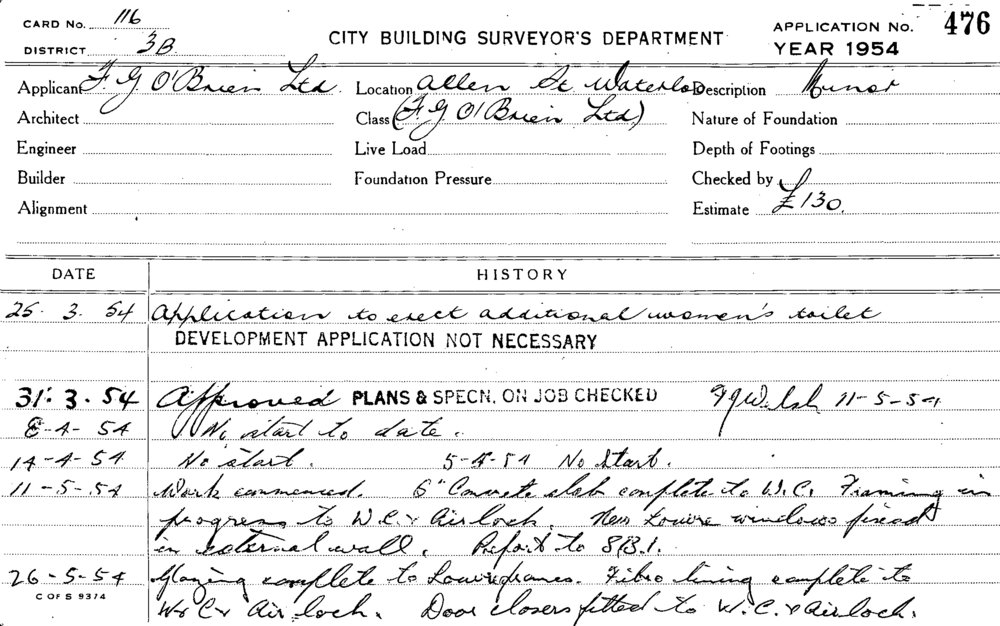 CARD No. 116
DISTRICT 3B
CITY BUILDING SURVEYOR'S DEPARTMENT
APPLICATION No. 476
YEAR 1954
Applicant F. G O'Brien Ltd. Location Allen St Waterloo Description Minor
Architect Class (F. G O'Brien Ltd) Nature of Foundation
Engineer Live Load Depth of Footings
Builder Foundation Pressure Checked by
Alignment Estimate £130.
DATE HISTORY
25. 3. 54 Application to erect additional women's toilet
DEVELOPMENT APPLICATION NOT NECESSARY
31. 3. 54 Approved PLANS & SPECN. ON JOB CHECKED Welsh 11-5-54
8-4-54 No start to date.
14-4-54 No start. 5-4-54 No Start.
11-5-54 Work commenced. 6" Concrete slab complete to W.C. Framing in
progress to W.C. & Airlock. New Louvre windows fixed
in external wall. Report to S.B.I.
26-5-54 Glazing complete to Louvre frames. Fibro lining complete to
C OF S 9374
W.C. & Air lock. Door closers fitted to W.C. & Airlock.